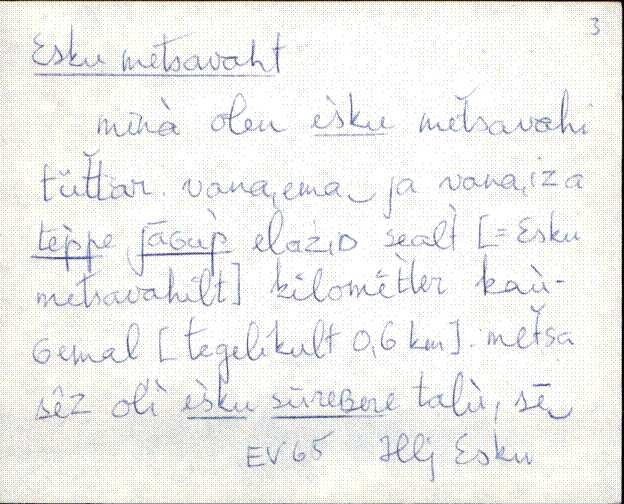 3
Esku metsavaht
minà olen èsku mets̆avahi
tüt̆t̆ar. vana,ema ja vana,iza
tèppe jāGùp elaz,ID sealt̀ [= Esku
metsavahilt] kilomēt̀ter kaù-
Gemal [tegelikult 0,6 km]. met̆sa
sêz olì èsku sūreBere talù, sē
EV65 Hlj Esku